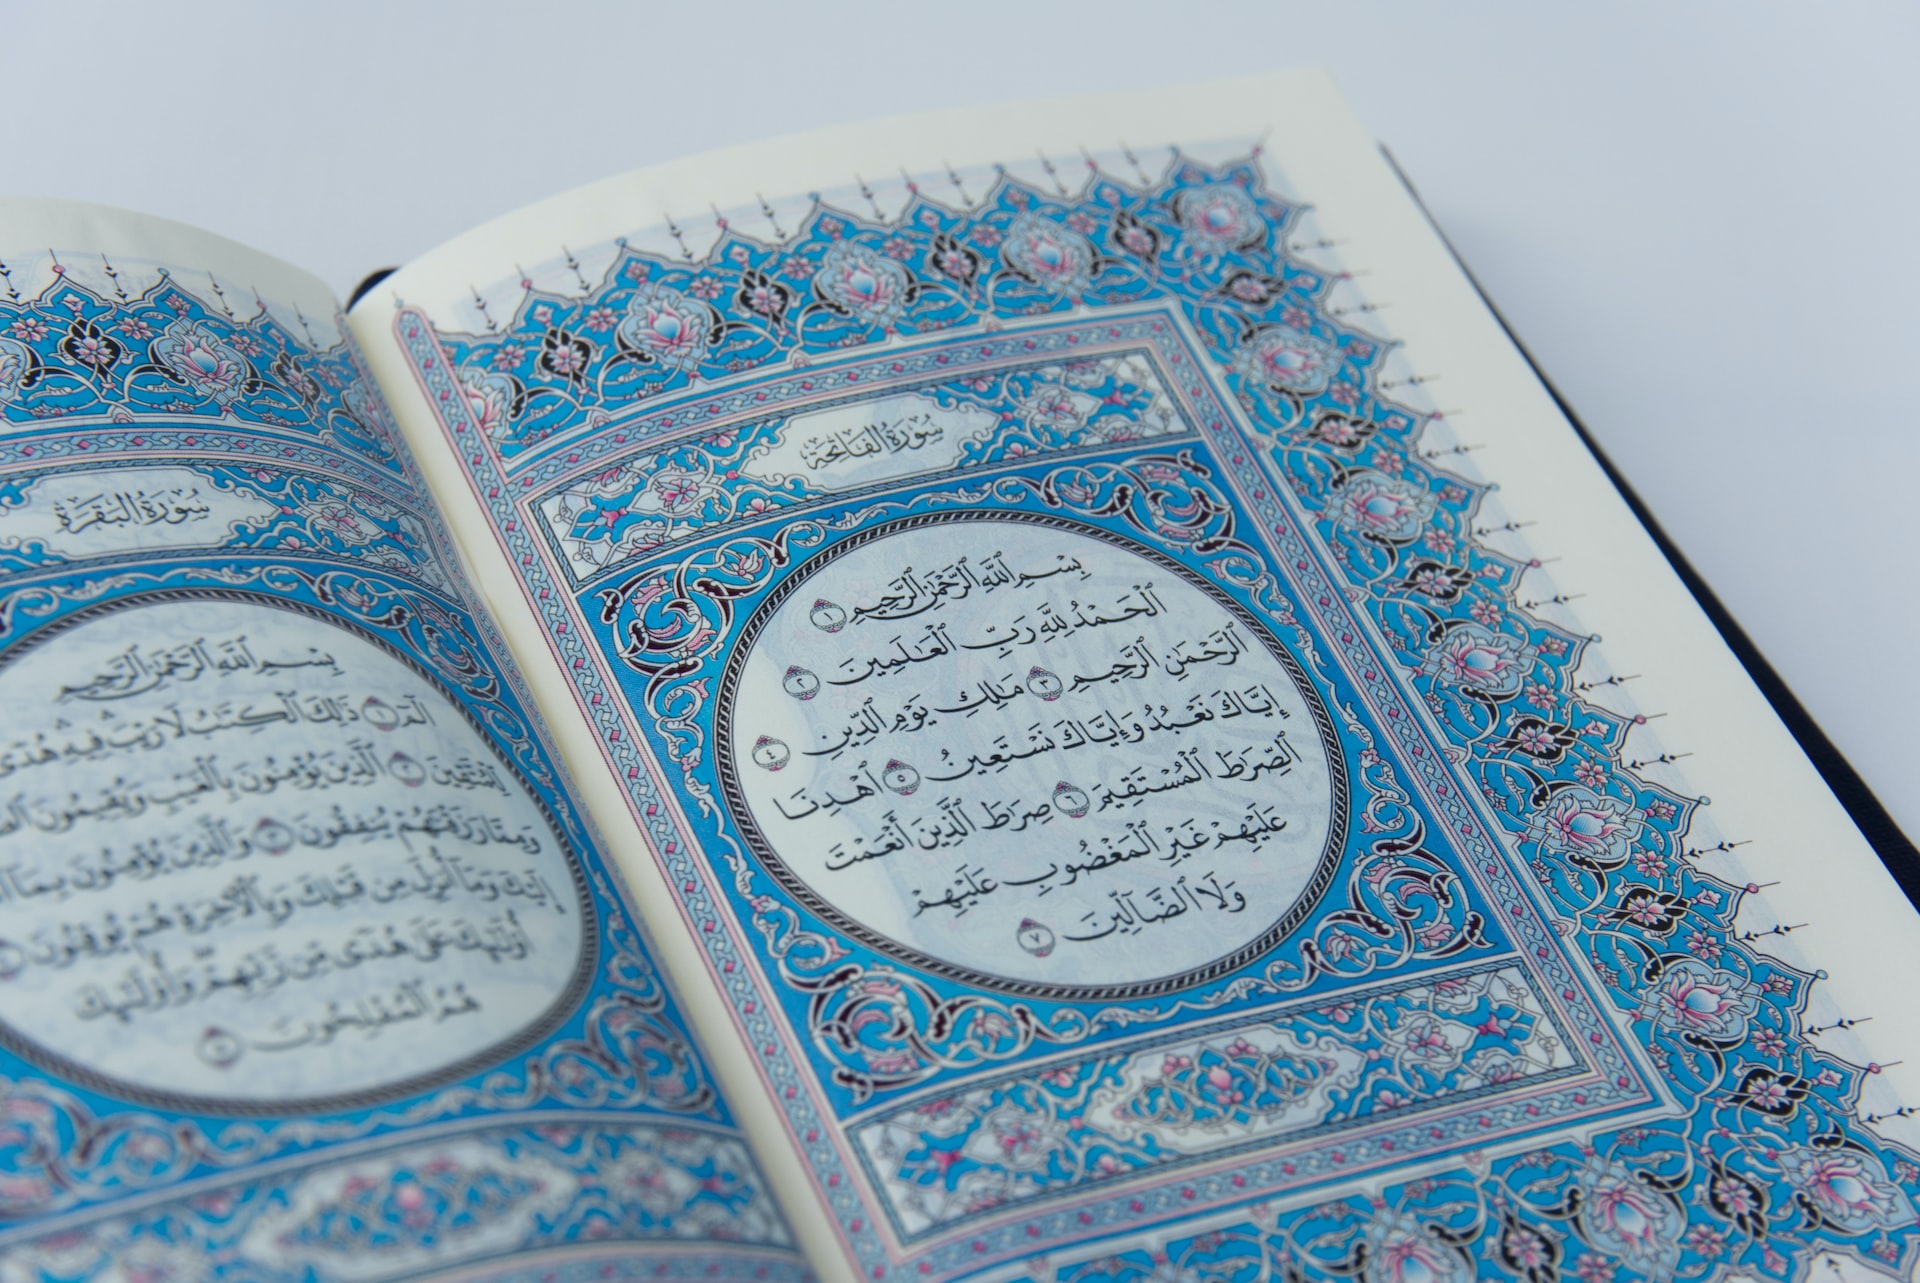 سُورَةُ الفَاتِحَةِ
بِسۡمِ ٱللَّهِ ٱلرَّحۡمَٰنِ ٱلرَّحِيمِ ١
ٱلۡحَمۡدُ لِلَّهِ رَبِّ ٱلۡعَٰلَمِينَ ٢
ٱلرَّحۡمَٰنِ ٱلرَّحِيمِ ٣ مَٰلِكِ يَوۡمِ ٱلدِّينِ ٤
إِيَّاكَ نَعۡبُدُ وَإِيَّاكَ نَسۡتَعِينُ ٥ ٱهۡدِنَا
ٱلصِّرَٰطَ ٱلۡمُسۡتَقِيمَ ٦ صِرَٰطَ ٱلَّذِينَ أَنۡعَمۡتَ
عَلَيۡهِمۡ غَيۡرِ ٱلۡمَغۡضُوبِ عَلَيۡهِمۡ
وَلَا ٱلضَّآلِّينَ ٧
سُورَةُ البَقَرَةِ
بِسۡمِ ٱللَّهِ ٱلرَّحۡمَٰنِ ٱلرَّحِيمِ
الٓمٓ ١ ذَٰلِكَ ٱلۡكِتَٰبُ لَا رَيۡبَۛ فِيهِۛ هُدٗى
لِّلۡمُتَّقِينَ ٢ ٱلَّذِينَ يُؤۡمِنُونَ بِٱلۡغَيۡبِ وَيُقِيمُونَ
وَمِمَّا رَزَقۡنَٰهُمۡ يُنفِقُونَ ٣ وَٱلَّذِينَ يُؤۡمِنُونَ بِمَآ
إِلَيۡكَ وَمَآ أُنزِلَ مِن قَبۡلِكَ وَبِٱلۡأٓخِرَةِ هُمۡ يُوقِنُونَ
أُوْلَٰٓئِكَ عَلَىٰ هُدٗى مِّن رَّبِّهِمۡۖ وَأُوْلَٰٓئِكَ
هُمُ ٱلۡمُفۡلِحُونَ